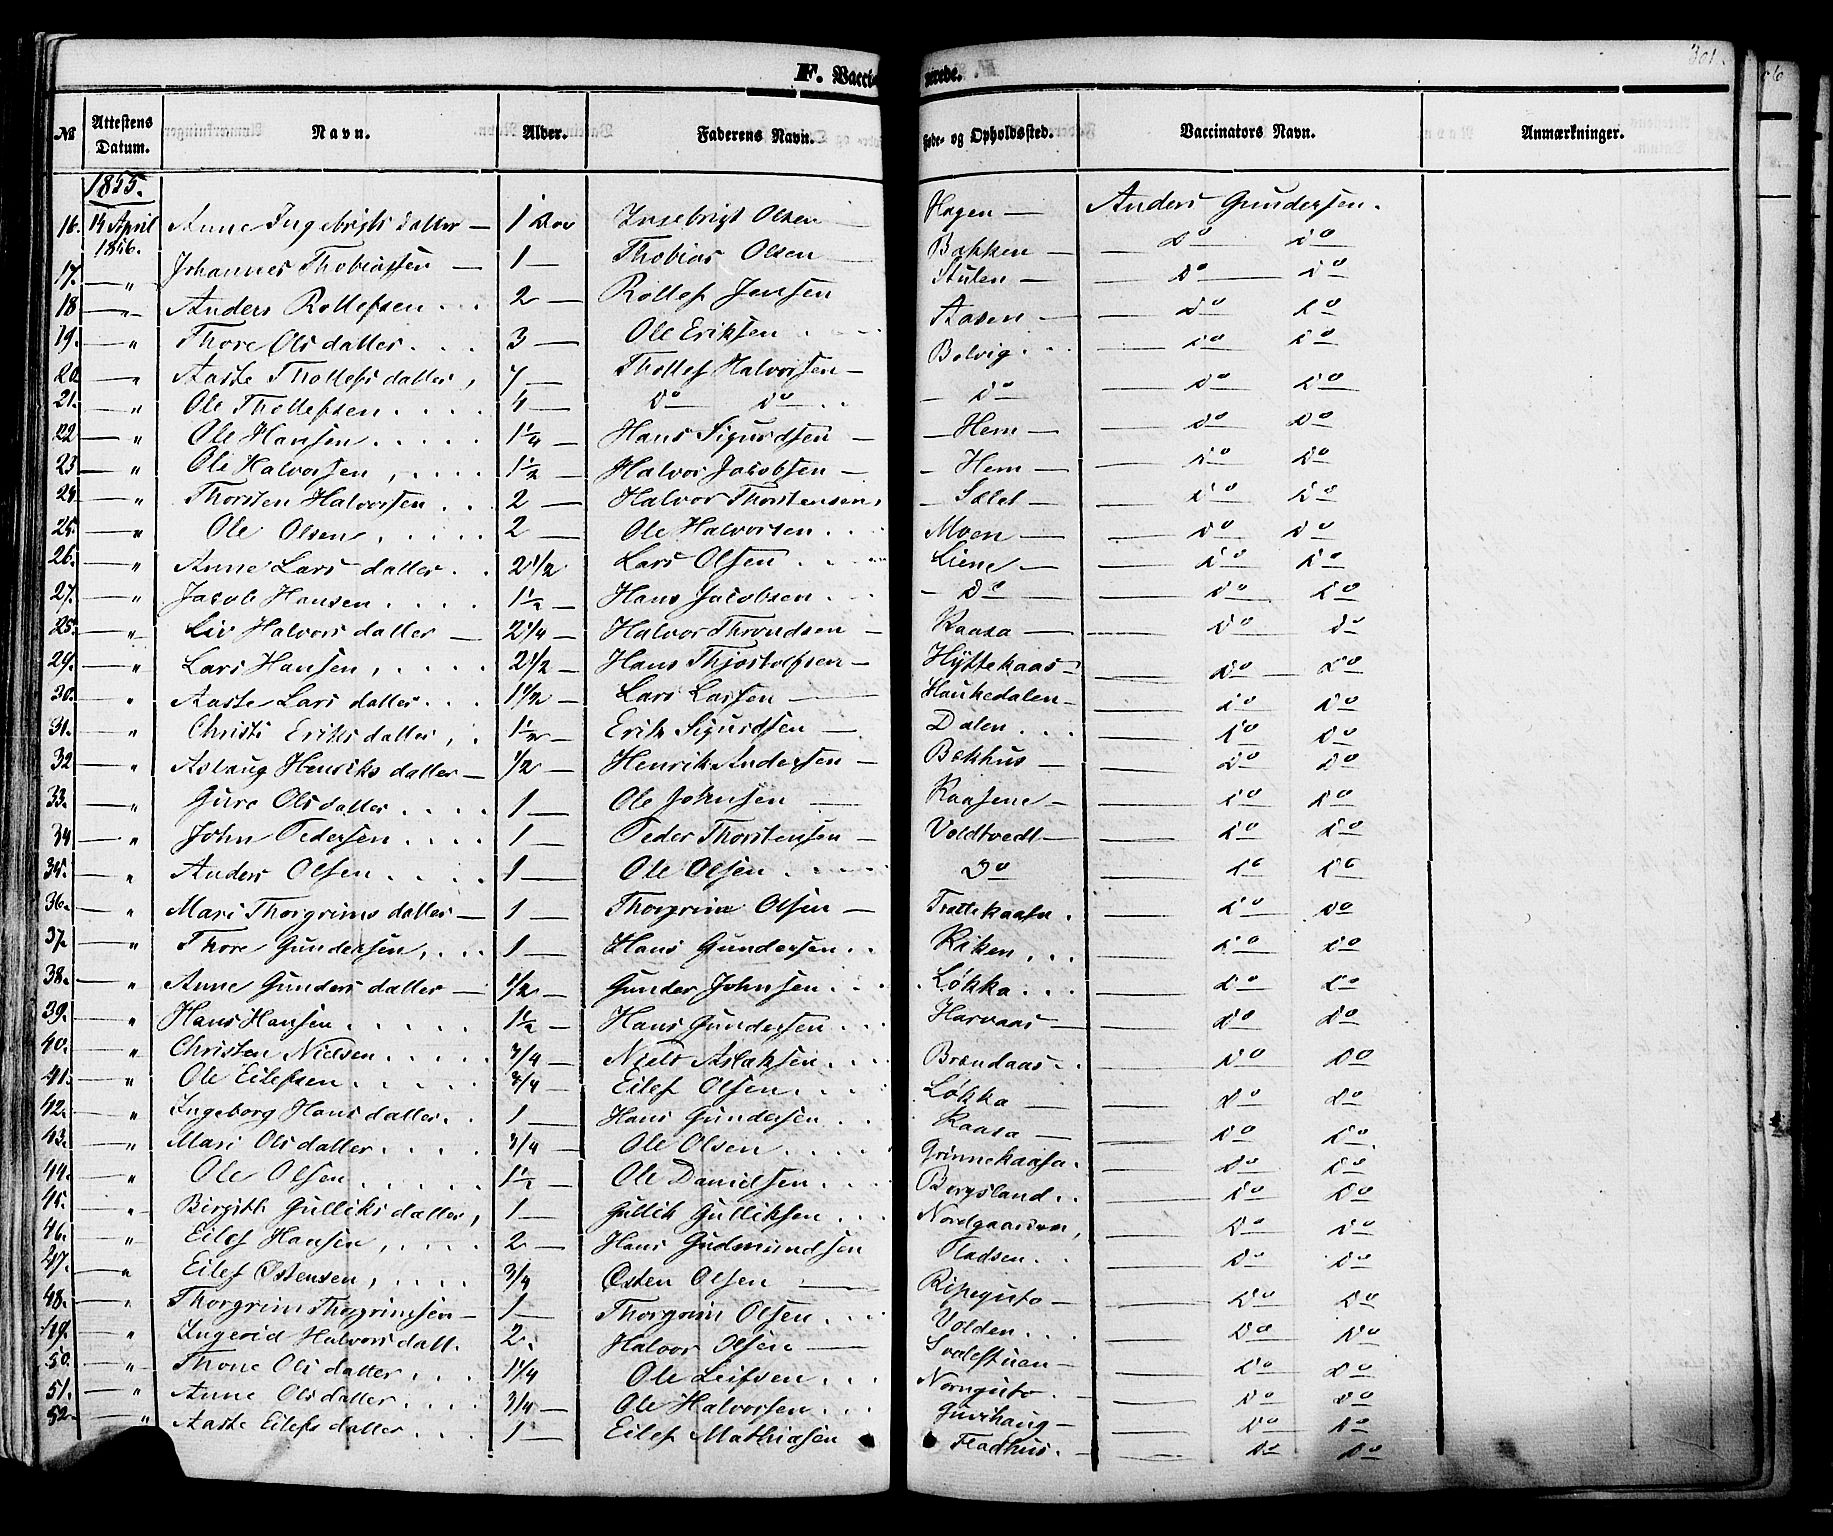 F. Vacci- nerede. 301.
No Attestens Datum. Navn. Alder. Faderens Navn. Føde- og Opholdssted. Vaccinators Navn. Anmærkninger.
1855.
16. 14 April 1856. Anne Ingebrigts datter — 1 Ingebrigt Olsen — Hagen — Anders Gundersen.
17. — " Johannes Thobiassen — 1 — Thobias Olsen — Bakken — Do Do
18 — " Anders Rollefsen . . . 2 — Rollef Jensen Stulen — Do Do
19. — " Thore Olsdatter . . . 3 — Ole Eriksen . . Aasen — Do Do
20 — " Aaste Thollefsdatter, 7 — Thollef Halvorsen — Bolvig . . . Do Do
21. — " Ole Thollefsen . . . . 4 — Do Do . . — Do Do Do
22 — " Ole Hansen . . . . . 1¼ — Hans Sigurdsen — — Hem — Do Do
23 — " Ole Halvorsen , . . . . 1½ — Halvor Jacobsen — - Hem — Do Do
24 — " Thorsten Halvorsen . . 2 — Halvor Thorstensen, - Sælet — Do Do
25. — " Ole Olsen, . . . . . 2 — Ole Halvorsen . . . Moen — Do Do
26. — " Anne Lars datter . . 2 1/2 — Lars Olsen . . . Liene — Do Do
27. — " Jacob Hansen . . . . 1½ — Hans Jacobsen . . . - Do Do Do
28. — " Liv Halvors datter — 2 1/4 — Halvor Throndsen — Kaasa — Do Do
29. — " Lars Hansen, . . . . 2 1/2 — Hans Thjostolfsen — Hyttekaas — Do Do
30. — " Aaste Lars datter . . . 1 1/2 — Lars Larsen — Haukedalen — Do Do
31. — " Christi Eriks datter, . 1½ — Erik Sigurdsen — Dalen . . . Do Do
32 — " Aslaug Henriks datter — 1/2 — Henrik Andersen — Bakhus — Do Do
33. — " Gure Olsdatter . . . . 1 — Ole Johnsen — Kaasene — Do Do
34 — " John Pedersen . . . . 1 — Peder Thorstensen — Voldtvedt — Do Do
35. — " Anders Olsen . . . . 1 — Ole Olsen . . . Do Do Do
36. — " Mari Thorgrims datter — 1 — Thorgrim Olsen — Trættekaasa . Do Do
37. — " Thore Gundersen, . . . 1 — Hans Gundersen . . Riken . . . Do Do
38. — " Anne Gunders datter — 1/2 — Gunder Johnsen . . . Løkka . . . Do Do
39. — " Hans Hansen . . . . . 1½ — Hans Gundersen . . . Harvaas — Do Do
40. — " Christen Nielsen . . . . 3/4 — Niels Aslaksen . . . Brandaas . . Do Do
41. — " Ole Eilefsen . . . . . 3/4 — Eilef Olsen . . . . Løkka — Do Do
42. — " Ingeborg Hans datter . . 1 — Hans Gundersen . . . Kaasa — Do Do
43. — " Mari Olsdatter . . . . 3/4 — Ole Olsen . . . Grinnekaasa . Do Do
44. — " Ole Olsen . . . . . . 1½ — Ole Danielsen . . . Bergsland . . Do Do
45. — " Birgitt Gulliks datter, 1 — Gullik Gulliksen . . . Do Do
46. — " Eilef Hansen, . . . . 2 — Hans Gudmundsen Fladsen . . Do Do
47. — " Eilef Østensen, . . . . 3/4 Østen Olsen — Ripeguto — Do Do
48. — " Thorgrim Thorgrimsen — 1 — Thorgrim Olsen . . . Volden . . . Do Do
49. — " Ingerid Halvors datt. 2. Halvor Olsen — Do Do
50. — " Thone Olsdatter . . . 1 1/4 Ole Leifsen . . . Norguto . — Do Do
51. — " Anne Olsdatter . . . . 3/4 — Ole Halvorsen . . . Gurihaug — Do Do
52. — " Aaste Eilefsdatter . . . 1 — Eilef Mathiasen Fladhus . — Do Do